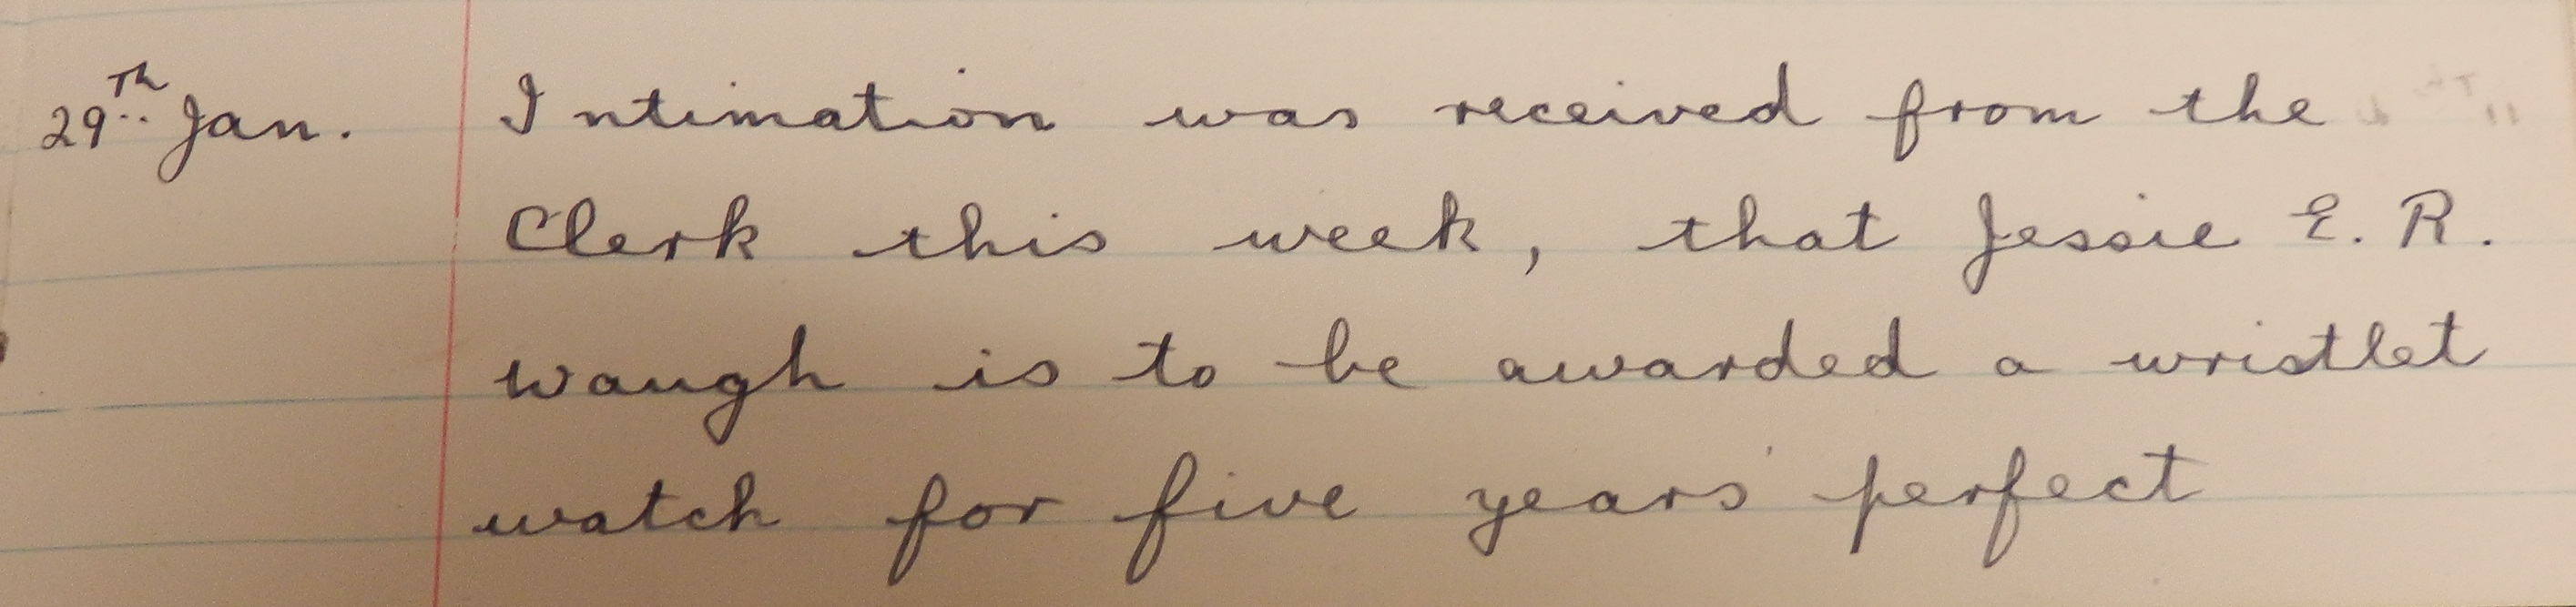 29th Jan. Intimation was received from the
Clerk this week, that Jessie E. R.
Waugh is to be awarded a wristlet
watch for five years' perfect